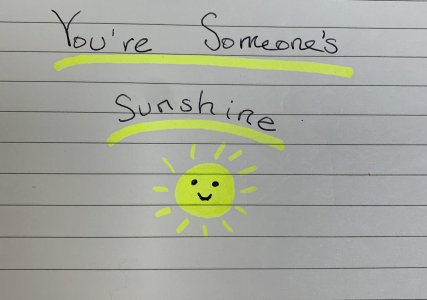 You're Someone's
Sunshine